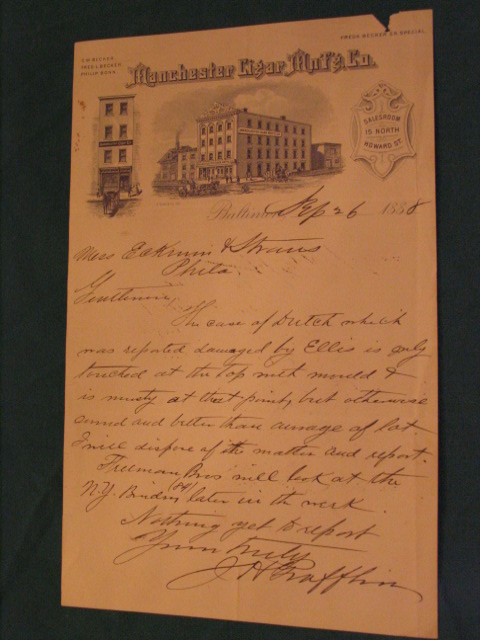 FRED L. BECKER
PHILIP BONN
Manchester Cigar Mnf'g. Co.
SALESROOM
15 NORTH
HOWARD ST.
Baltimore, Sep 26 1888
Mess & Straus
Phila
Gentlemen,
The case of Dutch which
was reported damaged by Ellis is only
touched at the top with mould &
is musty at that point, but otherwise
sound and better than average of lot
I will dispose of the matter and report.
Freeman Bros will look at the
N.Y. Binders later in the week.
Nothing yet to report
Yours truly
J H Grafflin